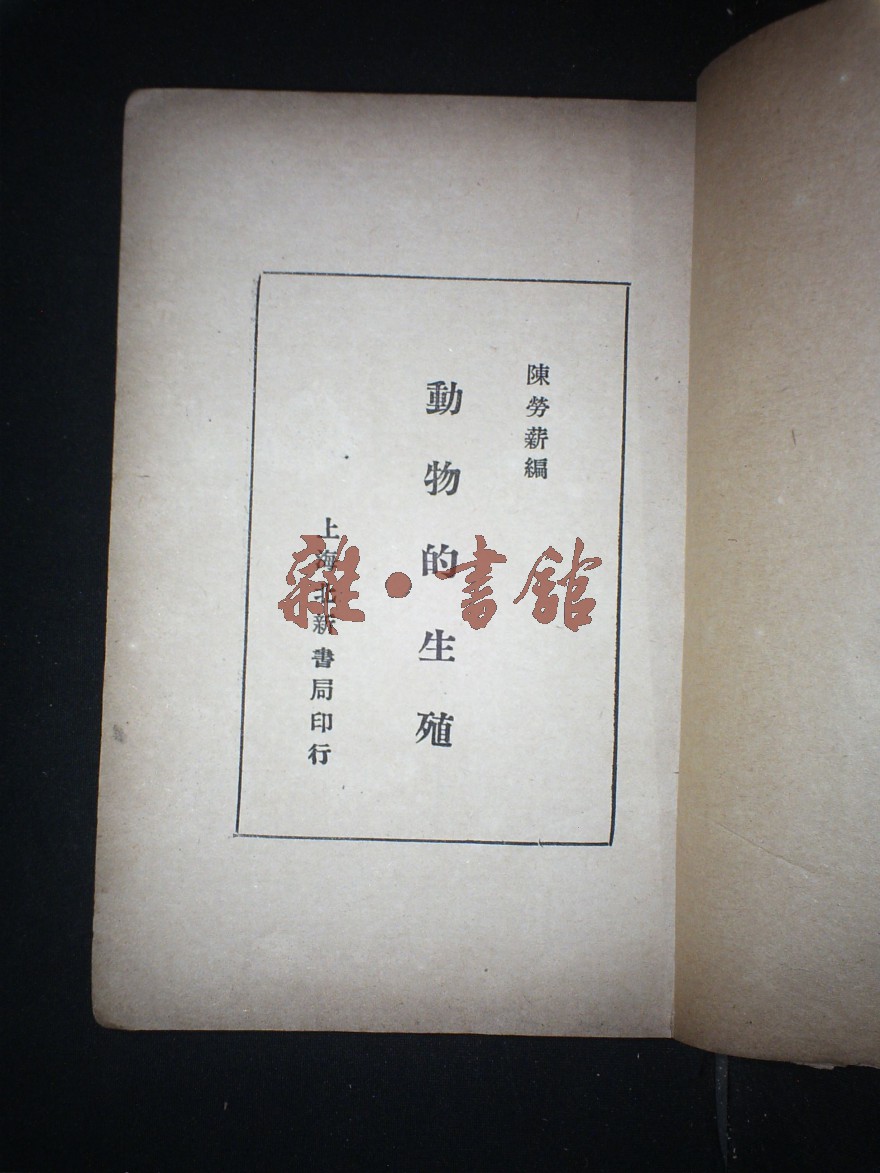 陳勞薪編
動物的生殖
上海北新書局印行
雜·書館